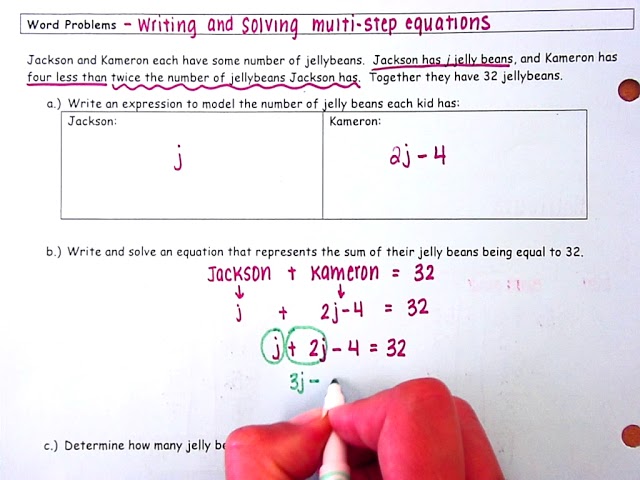 Word Problems - Writing and Solving multi-step equations
Jackson and Kameron each have some number of jellybeans. Jackson has j jelly beans, and Kameron has
four less than twice the number of jellybeans Jackson has. Together they have 32 jellybeans.
a.) Write an expression to model the number of jelly beans each kid has:
Jackson: Kameron:
j 2j - 4
b.) Write and solve an equation that represents the sum of their jelly beans being equal to 32.
Jackson + Kameron = 32
j + 2j - 4 = 32
j + 2j - 4 = 32
3j -
c.) Determine how many jelly